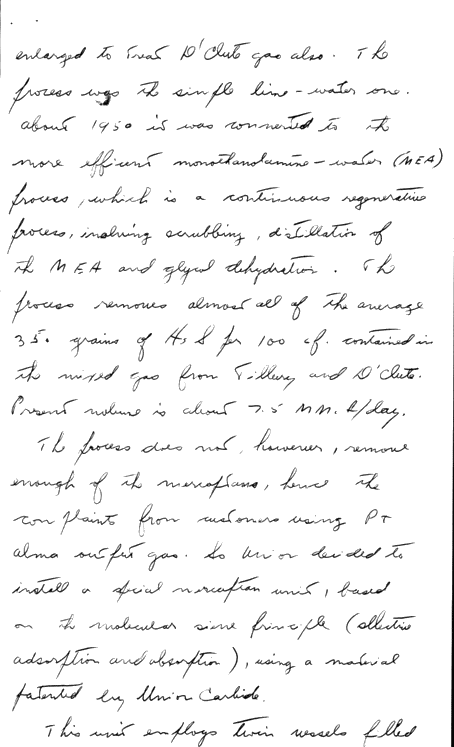 enlarged to treat D'Clute gas also. The
process was the simple lime-water one.
About 1950 it was converted to the
more efficient monoethanolamine-water (MEA)
process, which is a continuous regenerative
process, involving scrubbing, distillation of
the MEA and glycol dehydration. The
process removes almost all of the average
350 grains of H2S per 100 cf. contained in
the mixed gas from Tilbury and D'Clute.
Present volume is about 7.5 MM. /day.
The process does not, however, remove
enough of the mercaptans, hence the
complaints from customers using PT
Alma output gas. So Union decided to
install a special mercaptan unit, based
on the molecular sieve principle (selective
adsorption and absorption), using a material
patented by Union Carbide.
This unit employs twin vessels filled